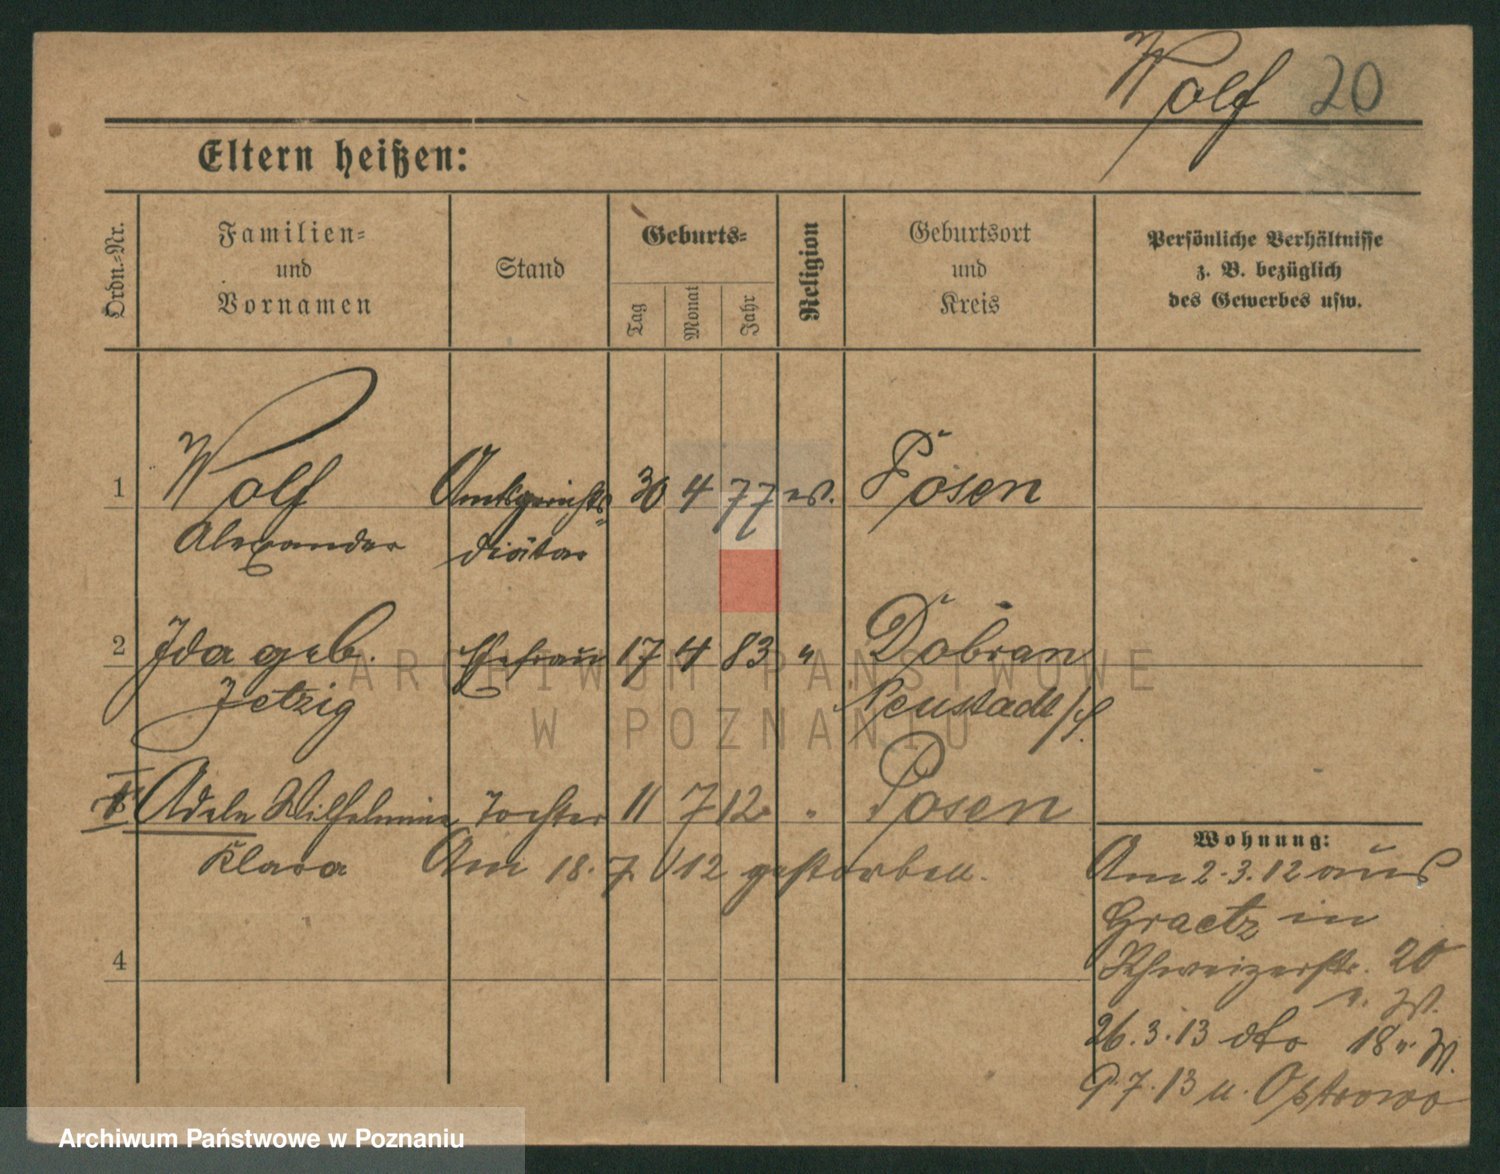 Wolf 20
Eltern heißen:
Ordn.-Nr.
Familien- und Vornamen
Stand
Geburts-
Tag
Monat
Jahr
Religion
Geburtsort und Kreis
Persönliche Verhältnisse z. B. bezüglich des Gewerbes usw.
1 Wolf Amtsgerichts- 30 4 77 ev. Posen
Alexander diätar
2 Ida geb. Ehefrau 17 4 83 " Dobran
Jetzig Neustadt
Adele Wilhelmine Tochter 11 7 12 " Posen
Klara Am 18.7.12 gestorben.
4
Wohnung:
Am 2.3.12 aus
Graetz in
Schweizerstr. 20
v. W.
26.3.13 dto 18 v. W.
9.7.13 n. Ostrowo
ARCHIWUM PAŃSTWOWE
W POZNANIU
Archiwum Państwowe w Poznaniu